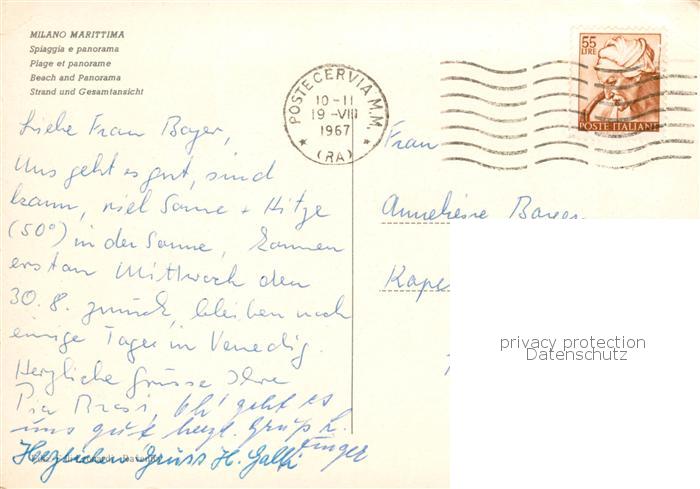 MILANO MARITTIMA
Spiaggia e panorama
Plage et panorame
Beach and Panorama
Strand und Gesamtansicht
POSTE CERVIA M.M.
10-11
19-VIII
1967
(RA)
55
LIRE
POSTE ITALIANE
Liebe Frau Bayer,
Uns geht es gut, sind
braun, viel Sonne + Hitze
(50°) in der Sonne, kommen
erst am Mittwoch den
30.8. zurück, bleiben noch
einige Tage in Venedig.
Herzliche Grüsse Ihre
Pia geht es
uns gut herzl.
Herzlichen Gruss H.
Frau
Anneliese Bayer
privacy protection
Datenschutz